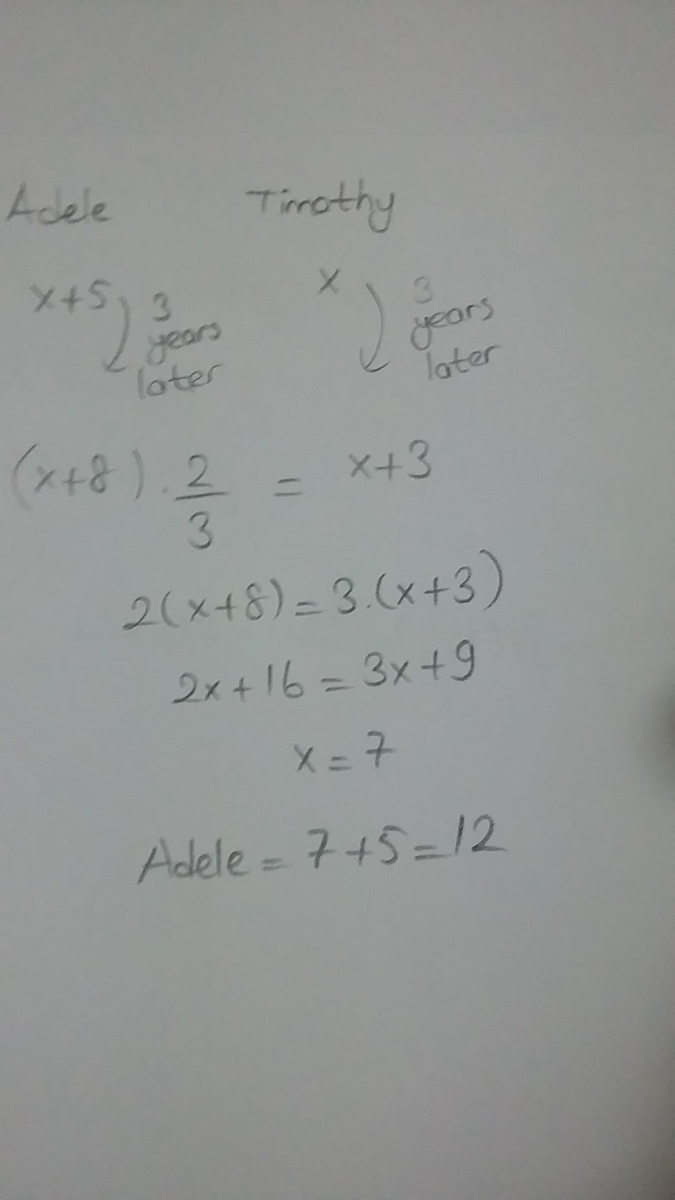 Adele Timothy
x+5 3 years later x 3 years later
(x+8) . 2/3 = x+3
2(x+8) = 3.(x+3)
2x+16 = 3x+9
x = 7
Adele = 7+5 = 12